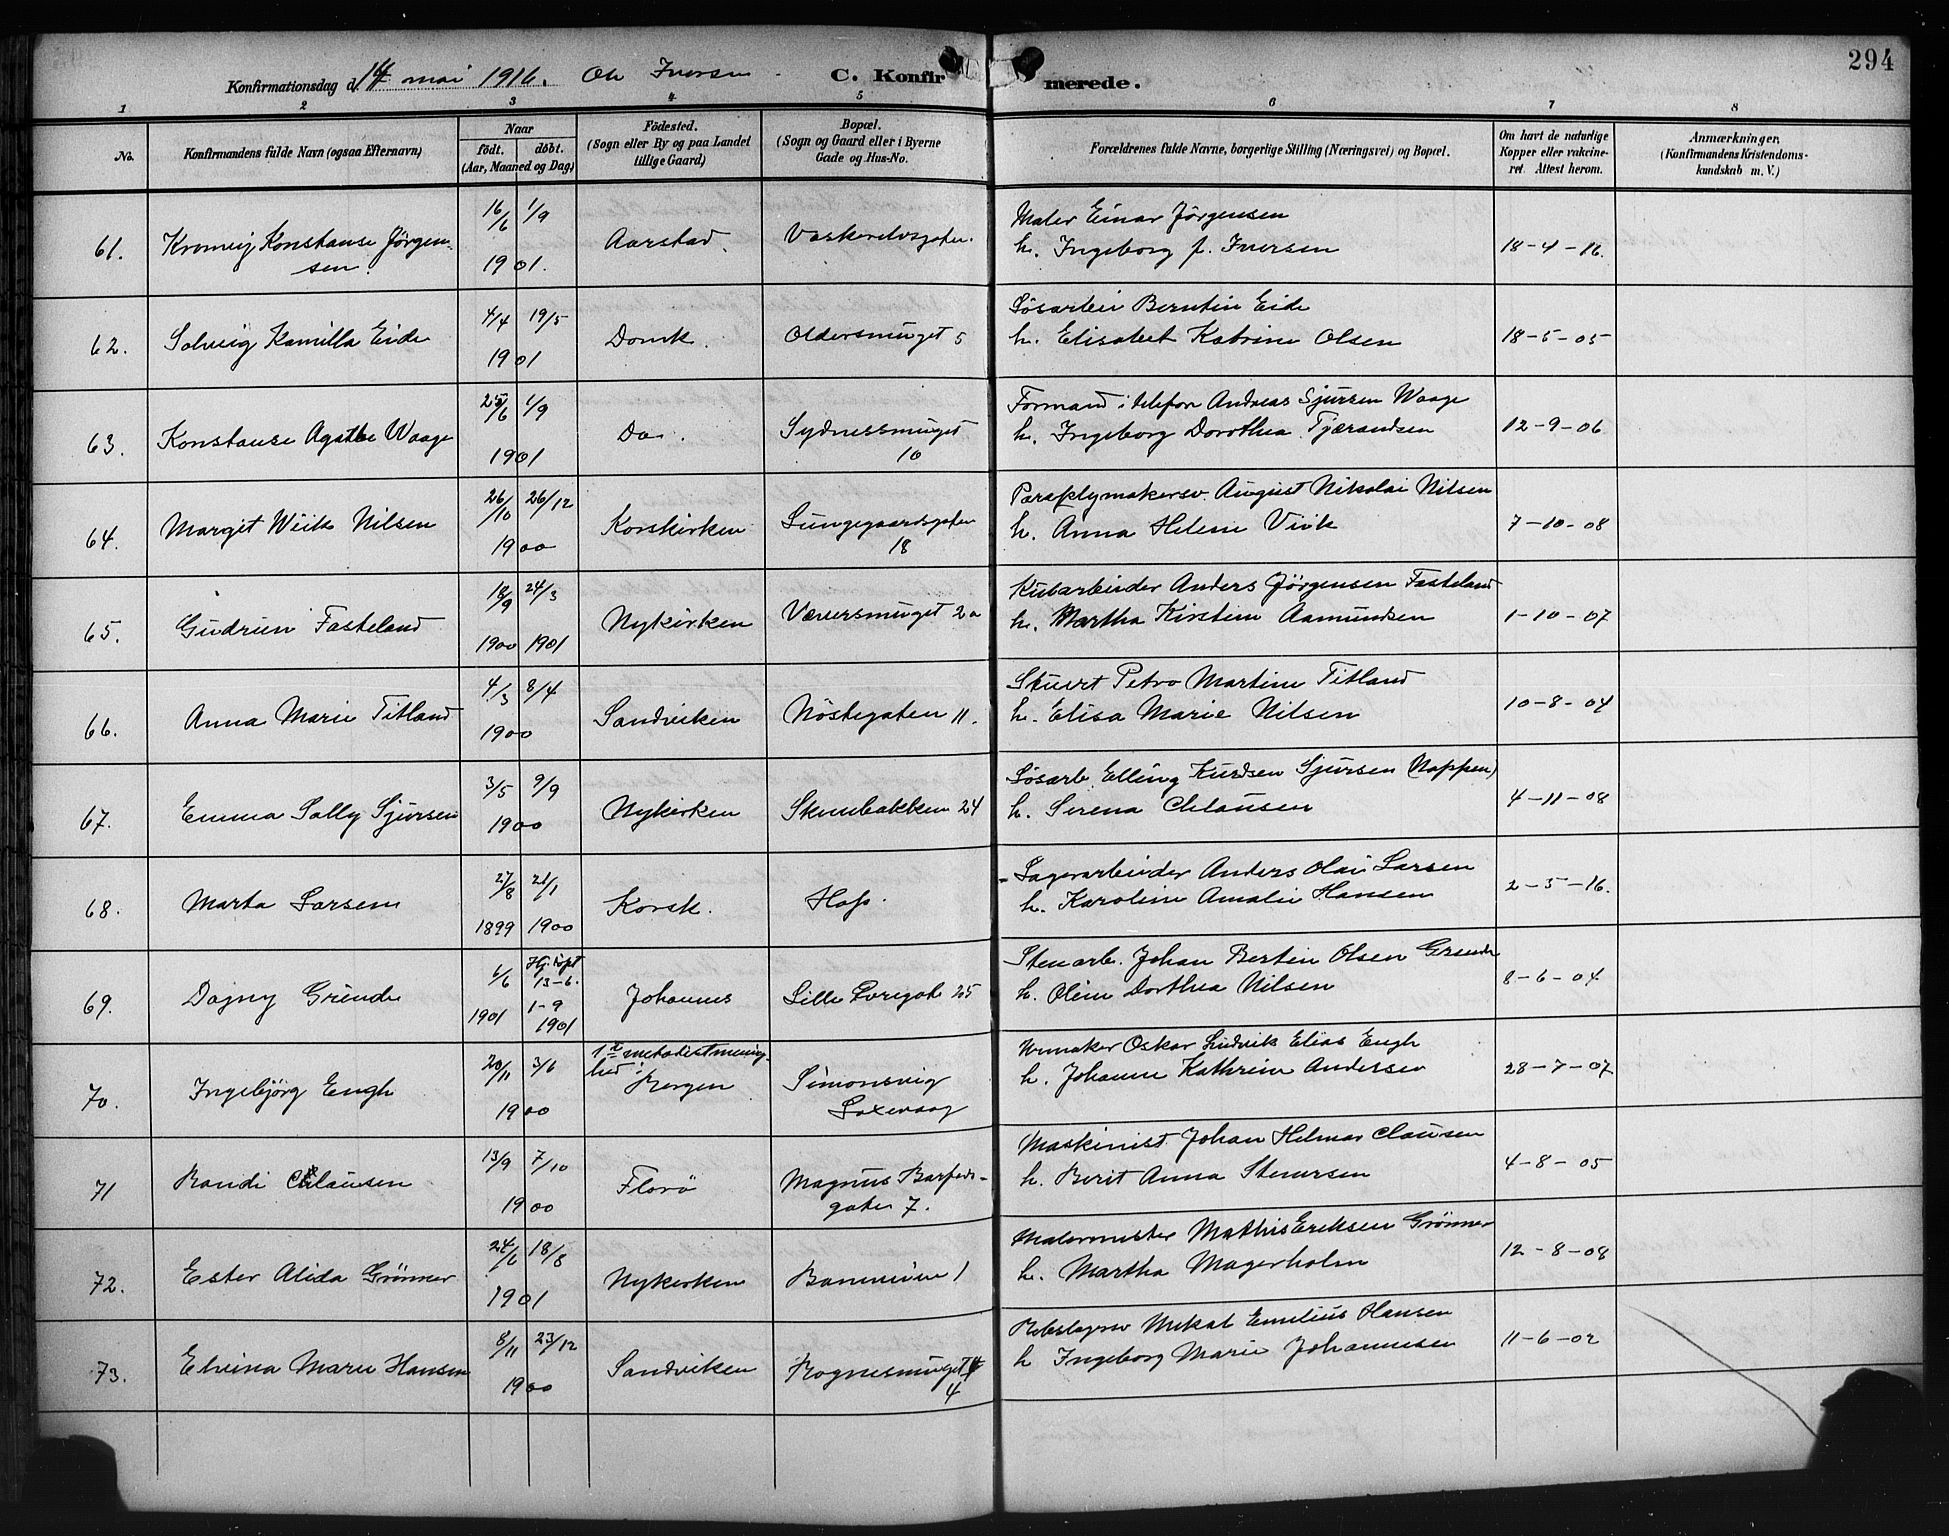 294
Konfirmationsdag d. 14 mai 1916. Ole Iversen. C. Konfirmerede.
1 2 3 4 5 6 7 8
No.
Konfirmandens fulde Navn (ogsaa Efternavn)
Naar
født. døbt.
(Aar, Maaned og Dag)
Fødested.
(Sogn eller By og paa Landet
tillige Gaard)
Bopæl.
(Sogn og Gaard eller i Byerne
Gade og Hus-No.
Forældrenes fulde Navne, borgerlige Stilling (Næringsvei) og Bopæl.
Om havt de naturlige
Kopper eller vakcine-
ret. Attest herom.
Anmærkninger,
(Konfirmandens Kristendoms-
kundskab m. V.)
61. Konstanse Jørgen-
sen.
16/6 1/9
1901.
Aarstad.
Maler Einar Jørgensen
h. Ingeborg f. Iversen
18-4-16.
62. Solveig Kamilla Eide
4/4 19/5
1901
Domk.
Oldersmuget 5
Løsarbei Berntin Eide
h. Elisabet Katrine Olsen
18-5-05
63. Konstanse Agathe Waage
25/6 1/9
1901
Do.
Sydnessmuget
10
Formand i telefon Andreas Sjursen Waage
h. Ingeborg Dorothea Tjærandsen
12-9-06
64. Margit Wiik Nilsen
26/10 26/12
1900
Korskirken
Lungegaardsgaten
18
Paraplymakersv. August Nikolai Nilsen
h. Anna Helene Viik
7-10-08
65. Gudrun Fasteland
18/9 24/3
1900 1901
Nykirken
Væversmuget 2a
Anders Jørgensen Fasteland
h. Martha Kirstine Aamundsen
1-10-07
66. Anna Marie Titland
4/3 8/4
1900
Sandviken
Nøstegaten 11.
Stuert Petro Martin Titland
h. Elisa Marie Nilsen
10-8-04
67. Emma Sally Sjursen
3/5 9/9
1900
Nykirken
Skunebakken 24
Løsarb. Elling Knudsen Sjursen (Nappen)
h. Serena Chlausen
4-11-08
68. Marta Larsen
27/8 21/1
1899 1900
Korsk.
Hop.
Lagerarbeider Anders Olai Larsen
h. Karoline Amalie Hansen
2-5-16.
69. Dagny Grinde
1/6 Hj. døpt
13-6.
1901 1-9
1901
Johannes
Lille Øvregate 25
Stenarb. Johan Bertin Olsen Grinde
h. Oline Dorthea Nilsen
8-6-04
70. Ingebjørg Engh
20/11 3/6
1900
1ste metodistmenig-
hed i Bergen
Simonsvig
Laxevaag
Urmaker Oskar Ludvik Elias Engh
h. Johanne Kathrine Andersen
28-7-07
71 Randi Clausen
13/9 7/10
1900
Florø
Magnus Barfods-
gaten 7.
Maskinist Johan Helmar Clausen
h. Berit Anna Stenersen
4-8-05
72. Ester Alida Grønner
24/6 18/8
1901
Nykirken
1
Malermester Mathis Eriksen Grønner
h. Martha Magerholm
12-8-08
73. Elvina Marie Hansen
8/11 23/12
1900
Sandviken
Rognesmuget
4
Mikal Emilius Hansen
h Ingeborg Marie Johannesen
11-6-02